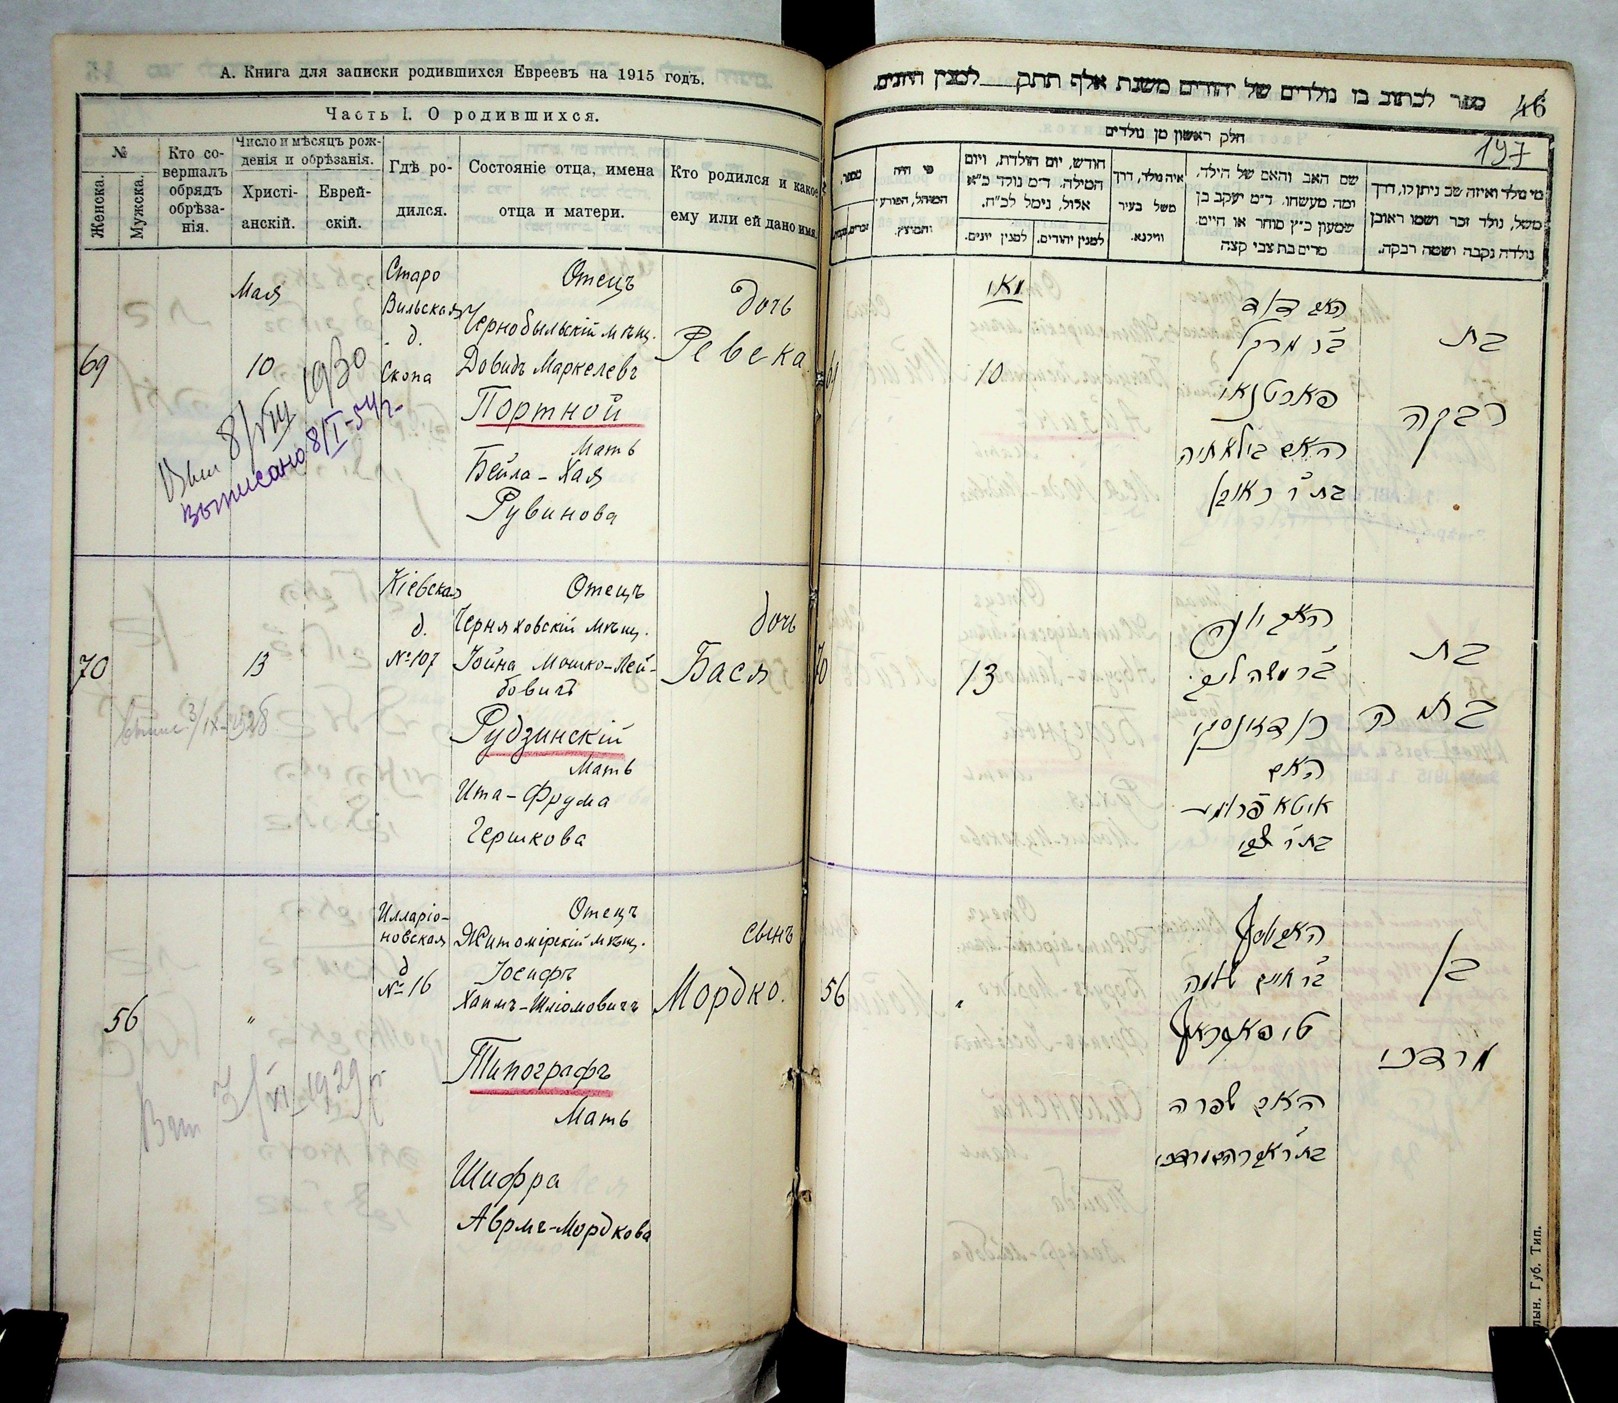 А. Книга для записки родившихся Евреевъ на 1915 годъ.
Часть I. О родившихся.
№
Женска.
Мужска.
Кто со-
вершалъ
обрядъ
обрѣза-
нія.
Число и мѣсяцъ рож-
денія и обрѣзанія.
Христі-
анскій.
Еврей-
скій.
Гдѣ ро-
дился.
Состояніе отца, имена
отца и матери.
Кто родился и какое
ему или ей дано имя.
69
Мая
10
Старо
Вильская
д.
Скопа
Отецъ
Чернобыльскій мѣщ.
Довидъ Маркелевъ
Портной
Мать
Бейла-Хая
Рувинова
дочь
Ревека
Вып 8/VIII 1930
Выписано 8/I-54г-
70
13
Кіевская
д.
№107
Отецъ
Черняховскій мѣщ.
Іойна Мошко-Лей-
бовичъ
Рудзинскій
Мать
Ита-Фрума
Гершкова
дочь
Бася
3/IX-1928
56
"
Илларіо-
новская
д
№16
Отецъ
Житомірскій мѣщ.
Іосифъ
Хаимъ-Шліомовичъ
Типографъ
Мать
Шифра
Аврмъ-Мордкова
сынъ
Мордко.
Вып 3/VI-1929 г
ספר לכתוב בו נולדים של יהודים משנת אלף תתק למנין היונים.
46
197
חלק ראשון מן נולדים
מספר.
זכרים
מי היה
המוהל, הפורע
והמוצץ.
חודש, יום הולדת, ויום
המילה. ד״מ נולד כ״א
אלול, נימול לכ״ח.
למנין יונים.
למנין יהודים.
איה נולד, דרך
משל בעיר
ווילנא.
שם האב והאם של הילד,
ומה מעשהו. ד״מ יעקב בן
שמעון כ״ץ סוחר או חיים.
מרים בת צבי קצה
מי נולד ואיזה שם ניתן לו, דרך
משל, נולד זכר ושמו ראובן
נולדה נקבה ושמה רבקה.
מאי
10
האב דוד
ב״ר מרקל
פארטנאי
האם ביילא חיה
בת ר׳ ראובן
בת
רבקה
70
13
האב יונה
ב״ר משה לייב
רודזינסקי
האם
איטא פרומט
בת ר׳ צבי
בת
בתיה
56
"
האב יוסף
ב״ר חיים שלמה
טיפאגראף
האם שפרה
בת ר׳ אברהם מרדכי
בן
מרדכי
Губ. Тип.